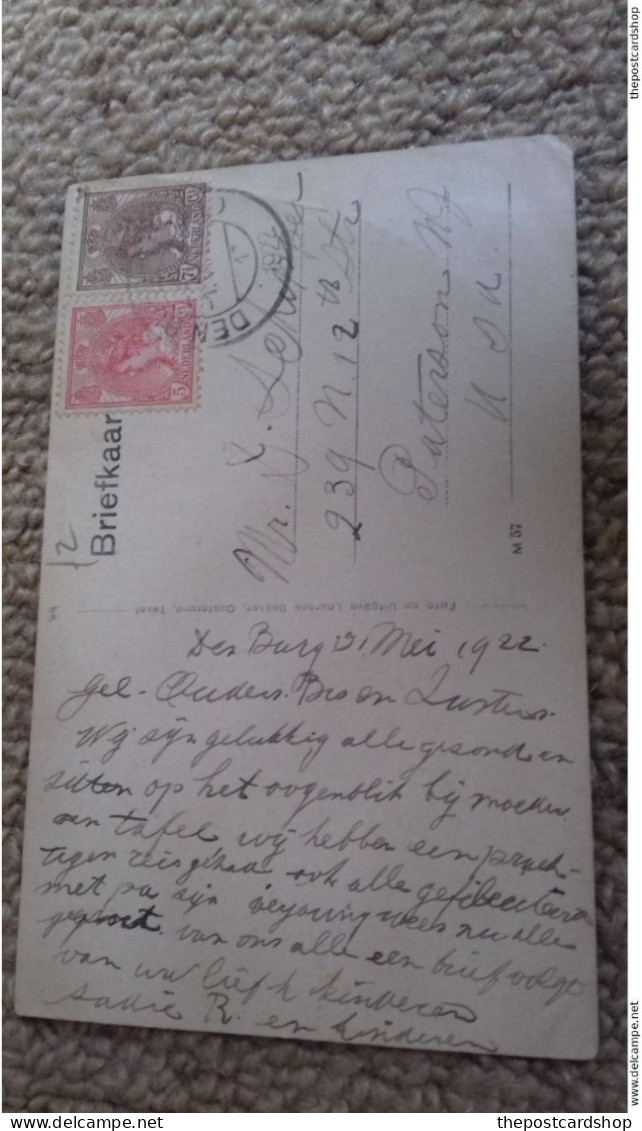 thepostcardshop
NEDERLAND
NEDERLAND
5
DEN
1922
Briefkaar
12
Mr. J.
239 N. 12 th Str
Paterson NJ
U S A
M 57
Foto en Uitgave Lourens Bakker, Oosterend, Texel
Den Burg 31 Mei 1922.
Gel - Ouders. Brs en Zusters.
Wij zijn gelukkig alle gezond en
sitten op het oogenblik bij moeder
aan tafel wij hebben een prach-
tigen reis gehad ook alle gefeliciteerd
met pa zijn verjaring wees nu alle
gegroet van ons alle een brief volgt
van uw lief h kinderen
Sadie R. en kinderen
www.delcampe.net
www.delcampe.net
thepostcardshop